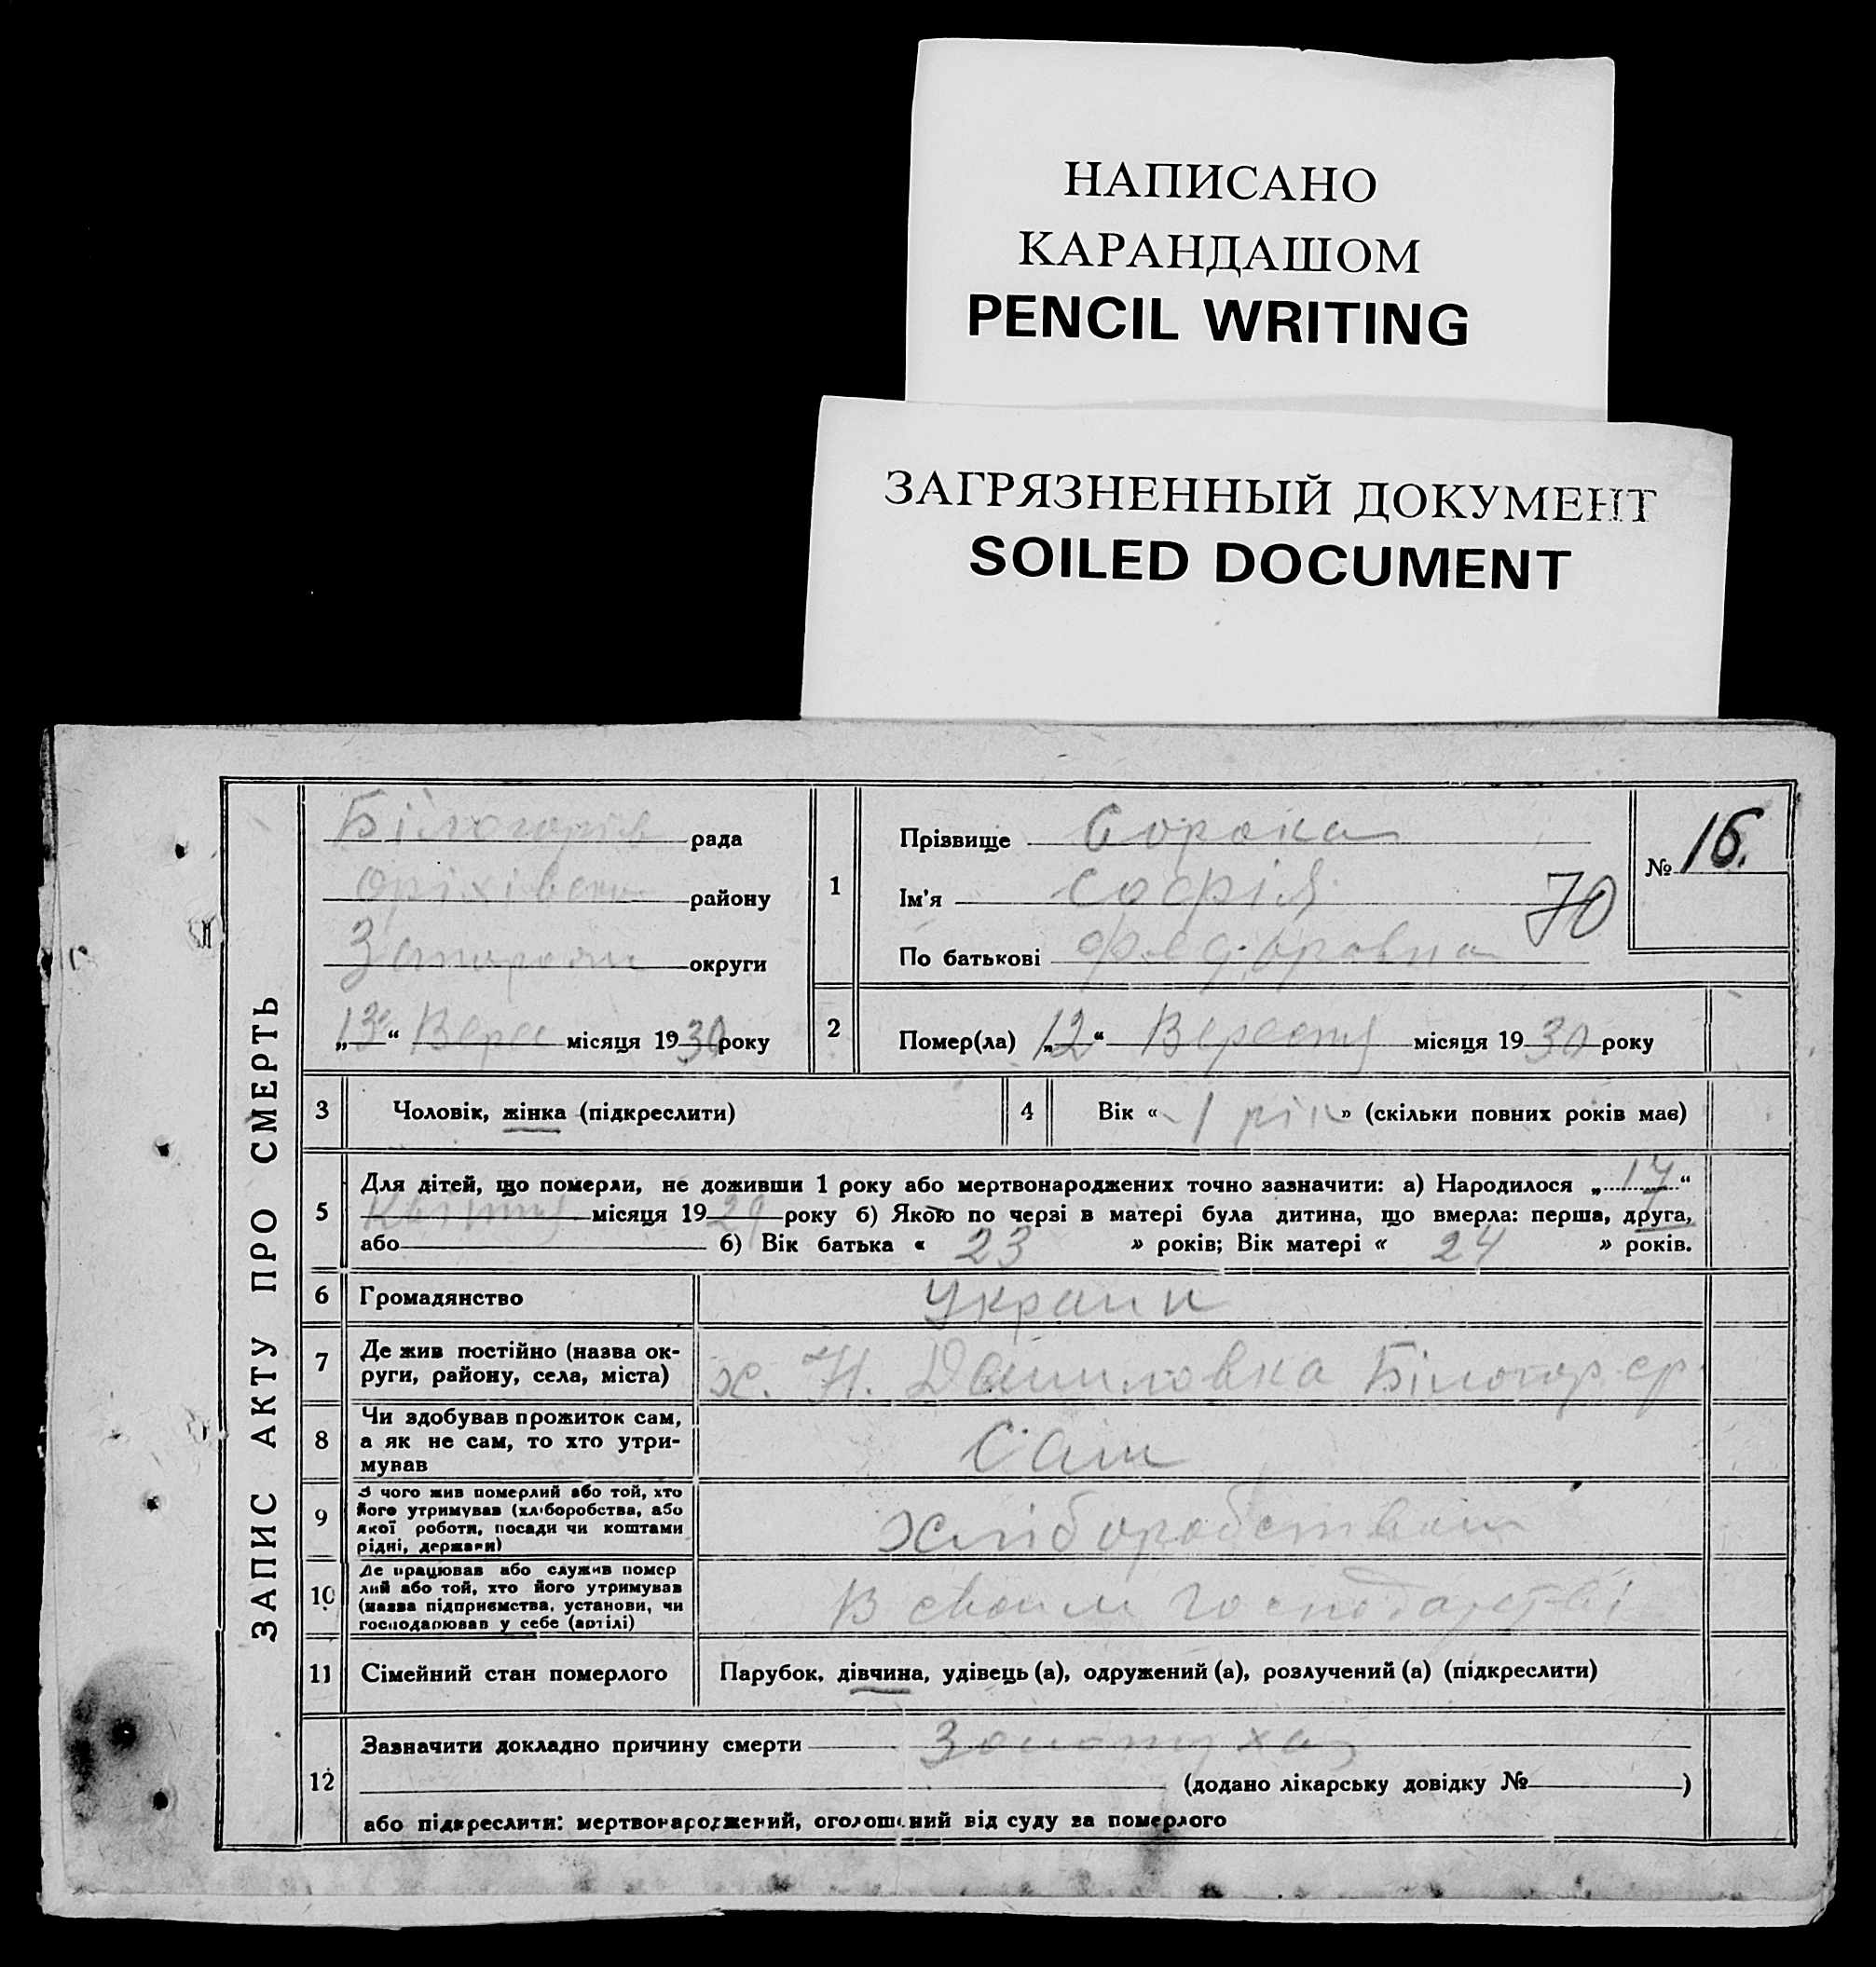 НАПИСАНО
КАРАНДАШОМ
PENCIL WRITING
ЗАГРЯЗНЕННЫЙ ДОКУМЕНТ
SOILED DOCUMENT
ЗАПИС АКТУ ПРО СМЕРТЬ
Білогорів рада
Оріхівськ району
округи
„13“ Верес місяця 1930 року
1
Прізвище Сорока
Ім'я Софія
По батькові Федоровна
70
№ 16.
2
Помер(ла) „12“ Вересня місяця 1930 року
3
Чоловік, жінка (підкреслити)
4
Вік « 1 рік » (скільки повних років має)
5
Для дітей, що померли, не доживши 1 року або мертвонароджених точно зазначити: а) Народилося „14“
Квітня місяця 1929 року б) Якою по черзі в матері була дитина, що вмерла: перша, друга,
або б) Вік батька « 23 » років; Вік матері « 24 » років.
6
Громадянство
Украин
7
Де жив постійно (назва ок-
руги, району, села, міста)
х. Н. Даниловка Білогор ср.
8
Чи здобував прожиток сам,
а як не сам, то хто утри-
мував
Сам
9
З чого жив померлий або той, хто
його утримував (хліборобства, або
якої роботи, посади чи коштами
рідні, держави)
Хліборобством
10
Де працював або служив помер
лий або той, хто його утримував
(назва підприємства, установи, чи
господарював у себе (артілі)
В своим господарстві
11
Сімейний стан померлого
Парубок, дівчина, удівець (а), одружений (а), розлучений (а) (підкреслити)
12
Зазначити докладно причину смерти Золотуха
(додано лікарську довідку № )
або підкреслити: мертвонароджений, оголошений від суду за померлого